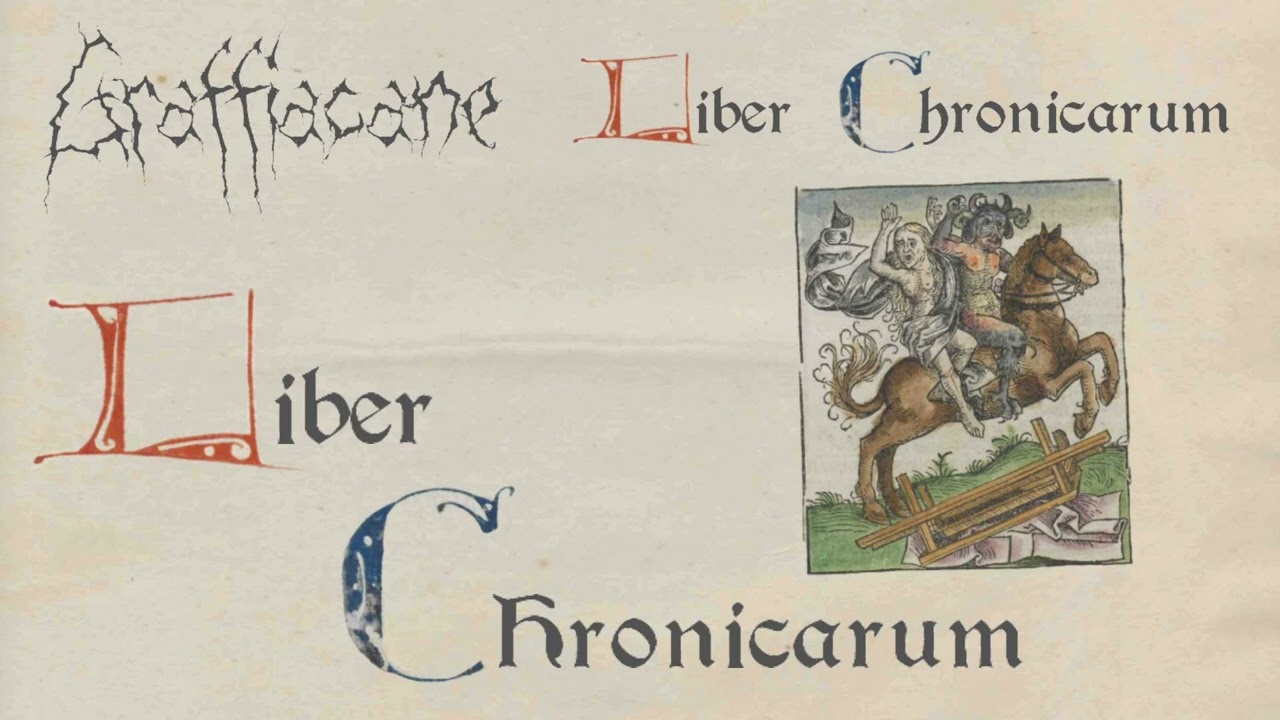 Graffiacane
Liber Chronicarum
Liber
Chronicarum